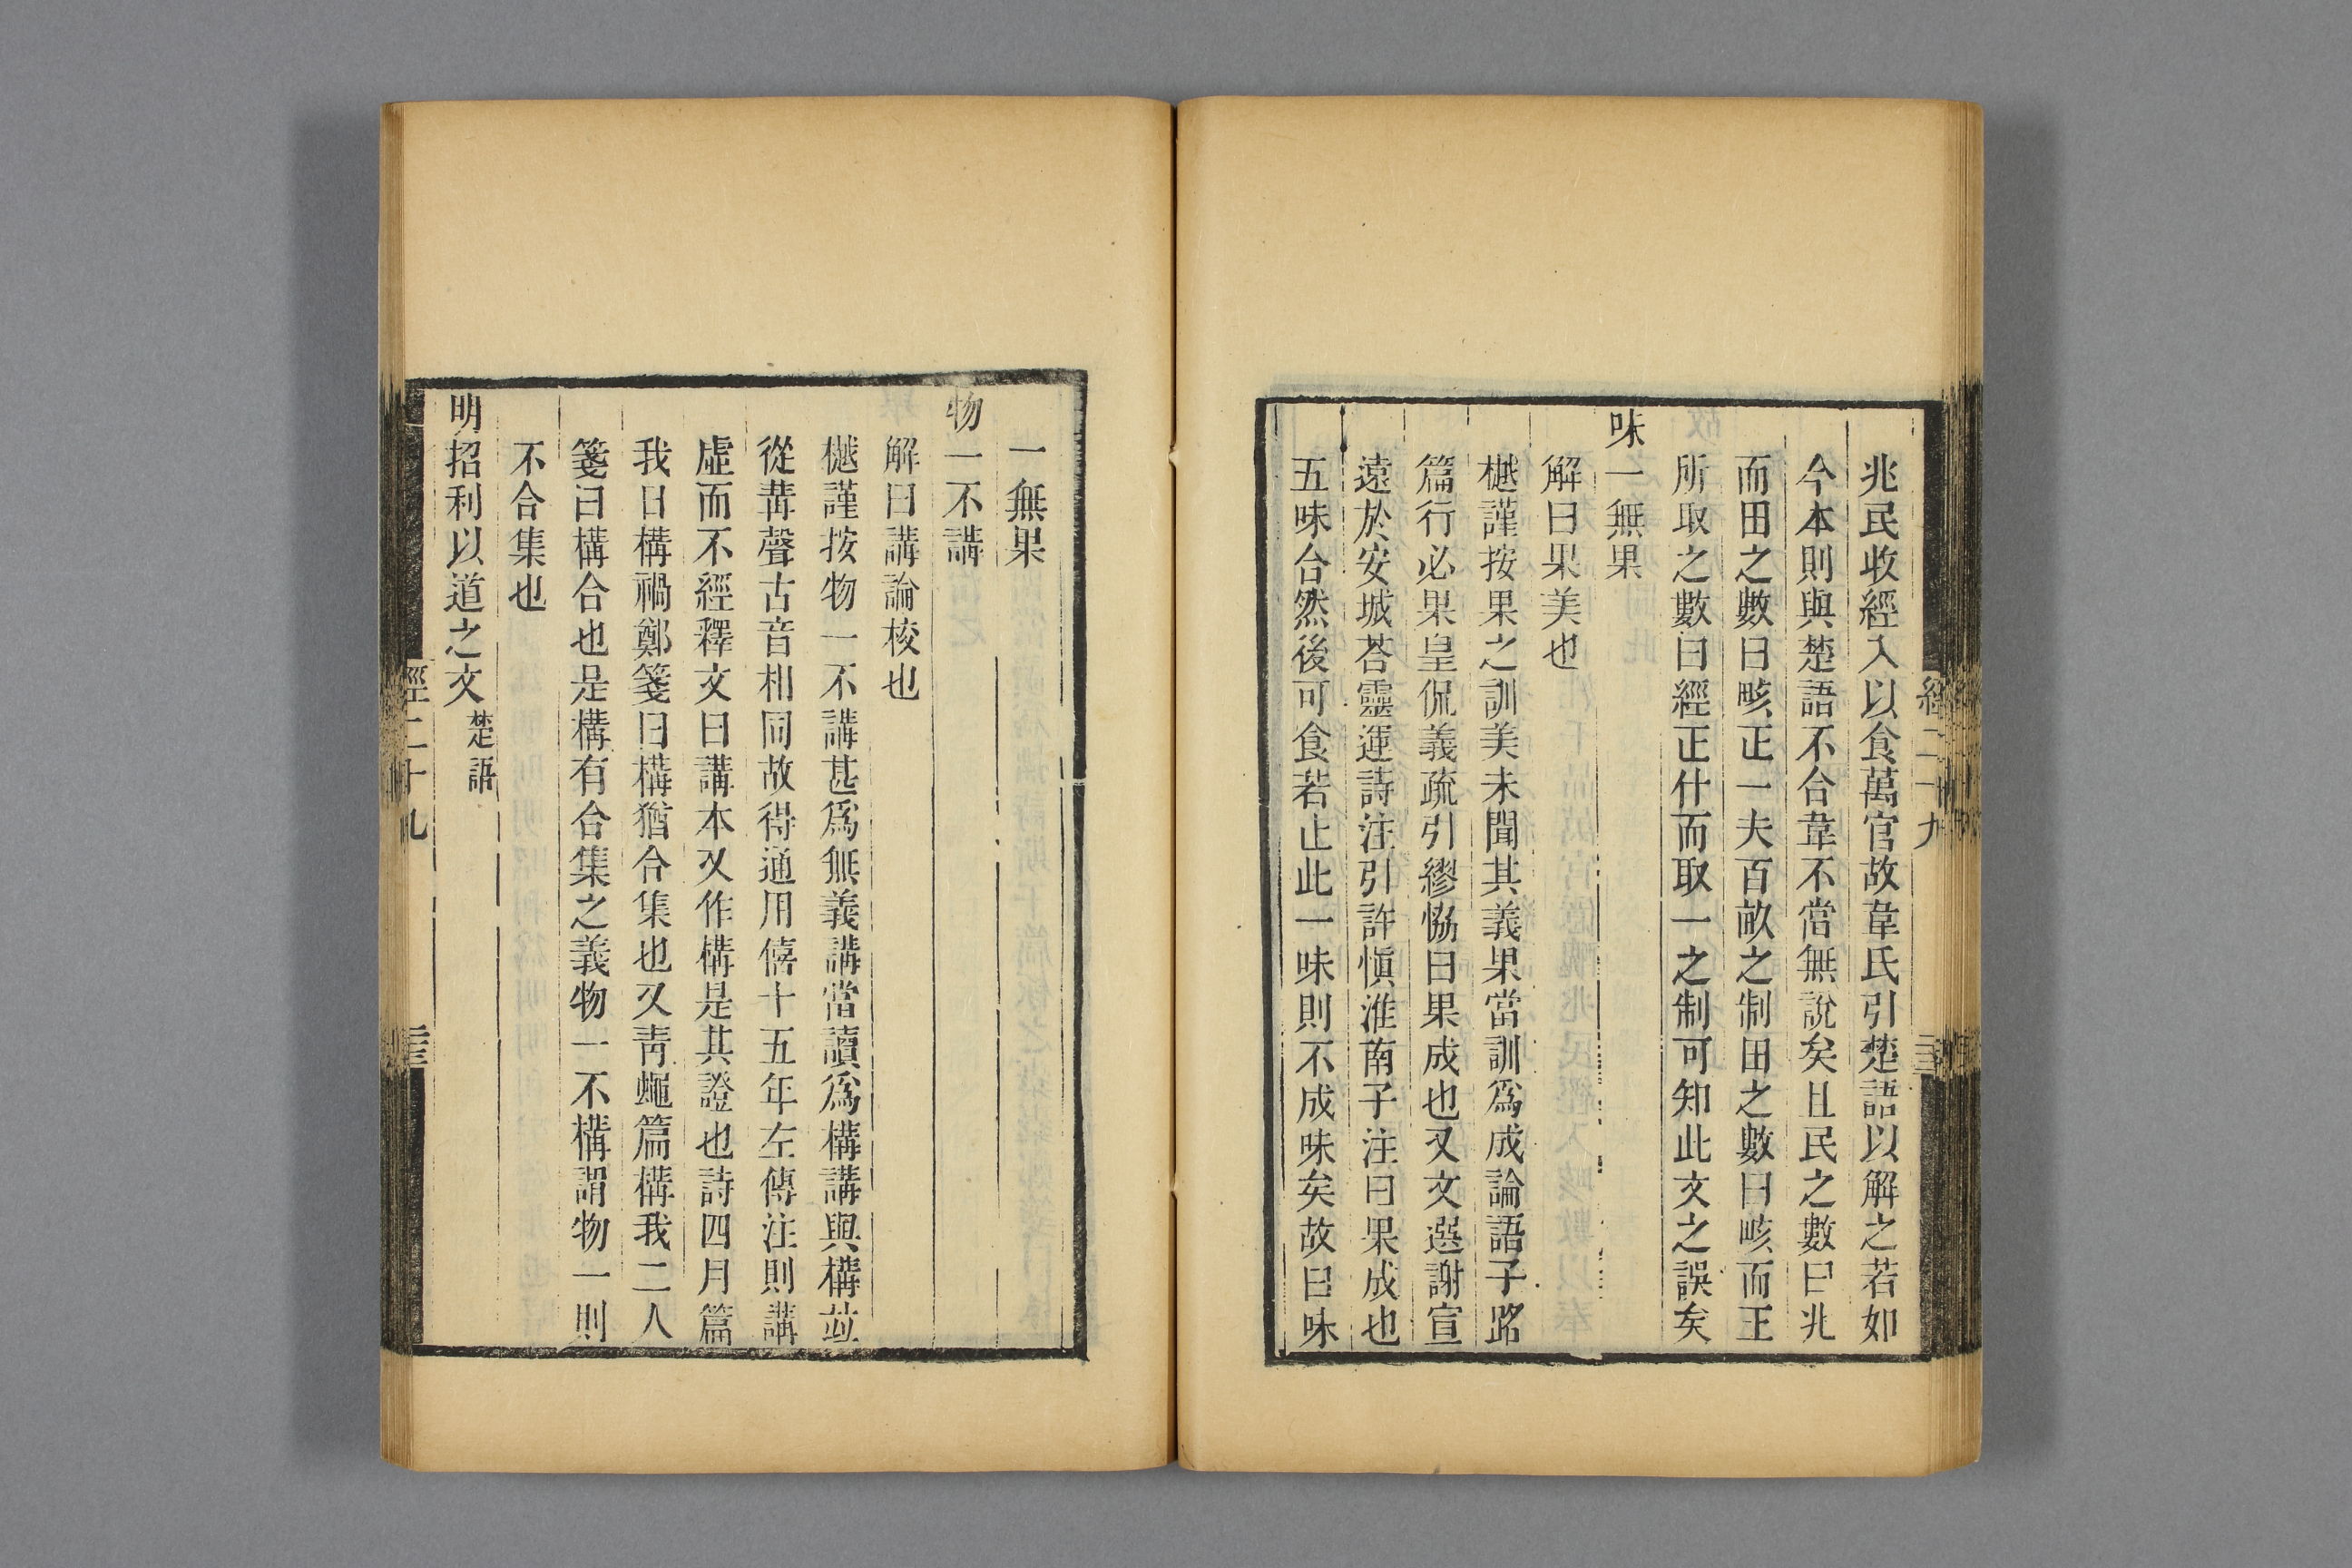 兆民收經入以食萬官故韋氏引楚語以解之若如
今本則與楚語不合韋不當無說矣且民之數曰兆
而田之數曰畡正一夫百畝之制田之數曰畡而王
所取之數曰經正什而取一之制可知此文之誤矣
味一無果
解曰果美也
樾謹按果之訓美未聞其義果當訓爲成論語子路
篇行必果皇侃義疏引繆協曰果成也又文選謝宣
遠於安城荅靈運詩注引許愼淮南子注曰果成也
五味合然後可食若止此一味則不成味矣故曰味
一無果
物一不講
解曰講論校也
樾謹按物一不講甚爲無義講當讀爲構講與構並
從冓聲古音相同故得通用僖十五年左傳注則講
虛而不經釋文曰講本又作構是其證也詩四月篇
我日構禍鄭箋曰構猶合集也又靑蠅篇構我二人
箋曰構合也是構有合集之義物一不構謂物一則
不合集也
明招利以道之文楚語
經二十九